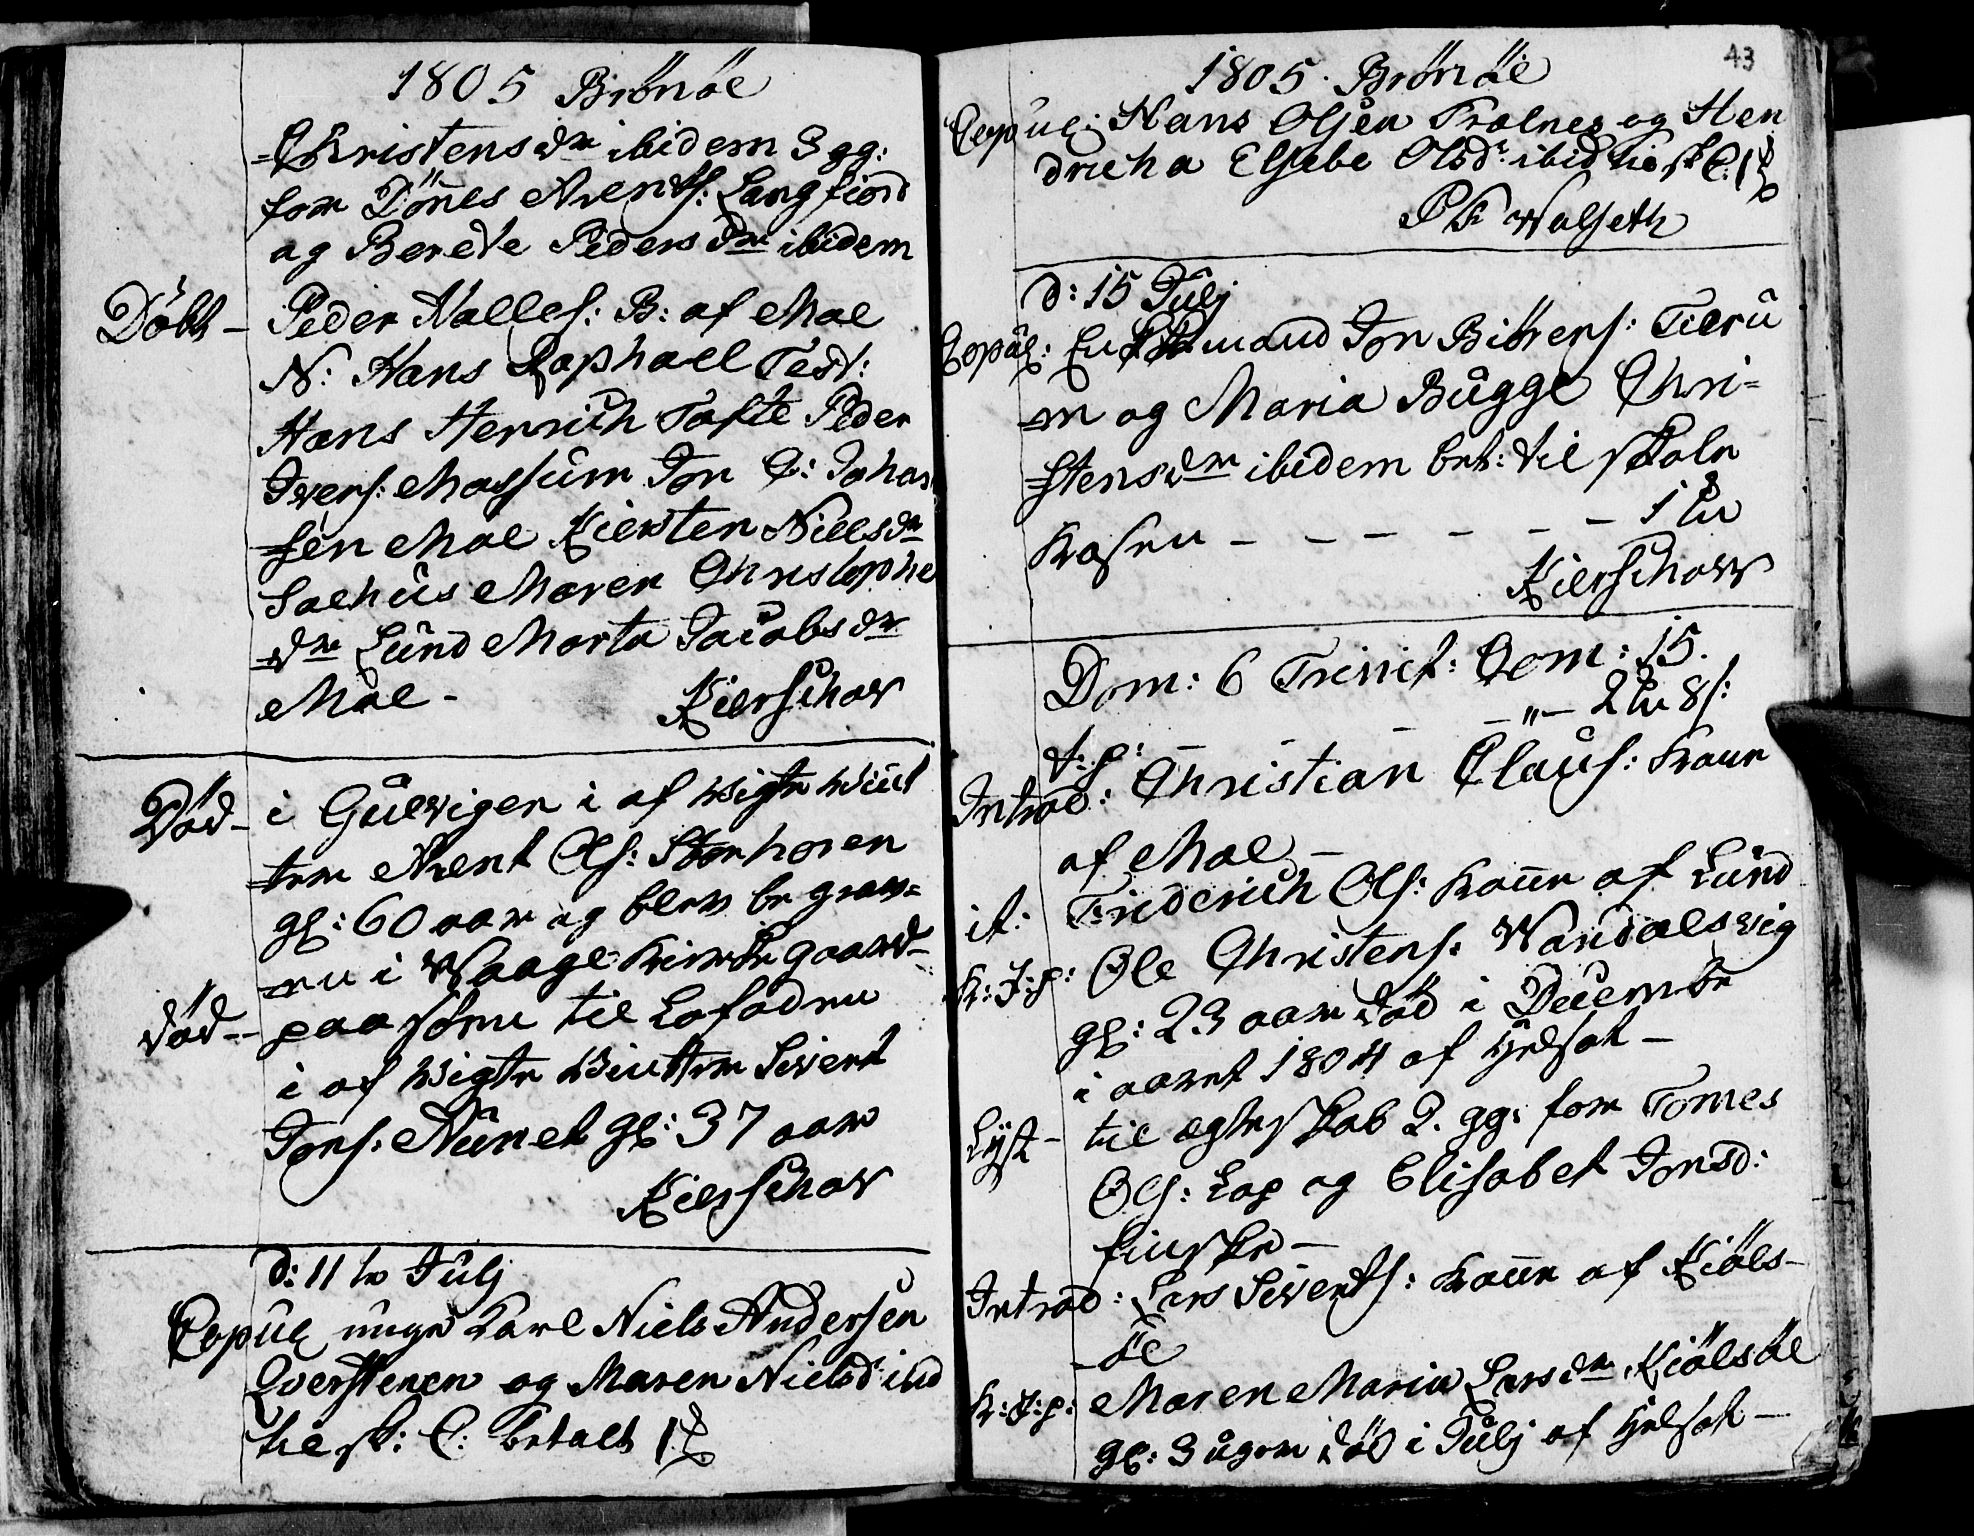 1805 Brönöe
=Christensdr ibidem 3 gg:
for Dönnes Arents: Langfiord
og Berete Pedersdr ibidem
Döbt - Peder Nalles: B: af Moe
N: Hans Raphael Test:
Hans Henrich Tofte Peder
Ivers: Mossum Jon C: Johan
=sen Moe Kiersten Nielsdr
Salhus Maren Christophe
=dr Lund Marta Jacobsdr
Moe - Kierschow
Död - i Gulvigen i af vigte Wint
=ter Arent Ols: Storhoven
gl: 60 aar og blev begrav=
en i Waage Kirkegaard -
död - - paa söen til Lofoden
i af vigte Winter Sivert
Jons: Nünet gl: 37 aar
Kierschow
d: 11te Julj
Copul unge Karl Niels Andersen
Qverstenen og Maren Nielsd: ibid
til sk: C: betalt 1
43
1805. Brönöe
Copul: Hans Olsen Trælnes og Hen
dricha Elsebe Olsdr: ibid til sk C: 1
P K Walseth
d: 15 Julj
Copul: Enkemand Jon Biörens: Tieru
m og Maria Bugge Chri=
=stensdr ibidem bet: til skole
kasen - - - - - - 1
Kierschow
Dom: 6 Trinit: Com: 15.
t: p: - - - - " - 2 8 s:
Introd: Christian Claus: Kone
af Moe -
it: Friderich Ols: Kone af Lund
K: J: p: Ole Christens: Wandalsvig
gl: 23 aar död i Decembr
i aaret 1804 af
Lÿst - til ægteskab 2. gg: for Tomes
Ols: Lap og Elisabet Jonsd:
finske -
Introd: Lars Siverts: Kone af Kiöls-
-öe
K: J: p: Maren Maria Larsdr Kiölsöe
gl: 3 uger död i Julj af